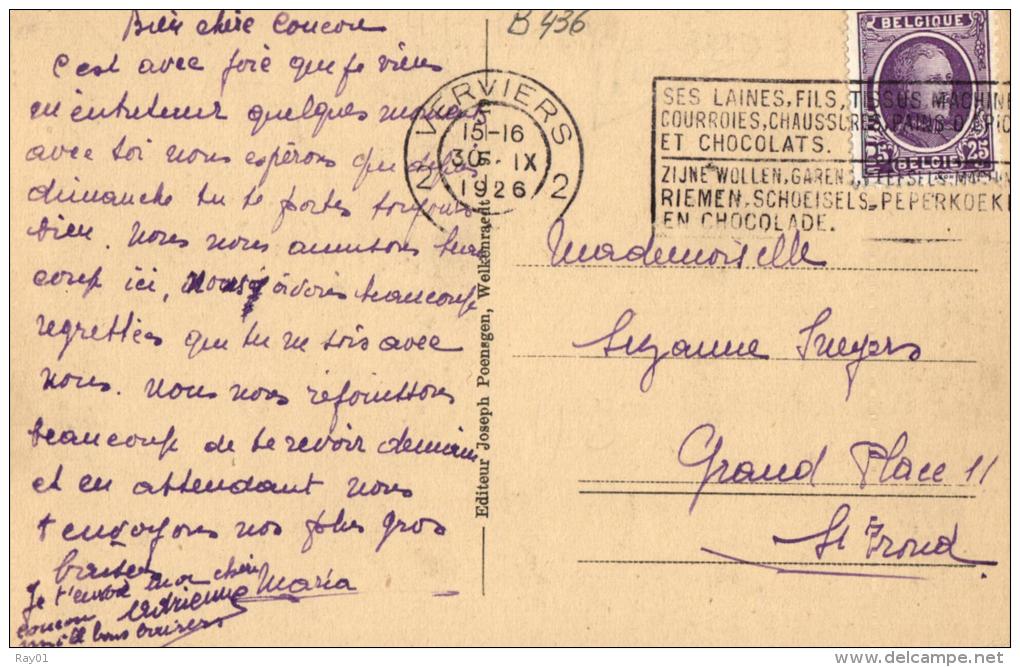 Bien chère Coucou
C'est avec joie que je viens
m'entretenir quelques moments
avec toi nous espérons que depuis
dimanche tu te portes toujours
bien. Nous nous amusons beau
coup ici, nous avons beaucoup
regrettées que tu ne sois avec
nous. Nous nous réjouissons
beaucoup de te revoir demain
et en attendant nous
t'envoyons nos plus gros
baisers
Maria
Je t'envoie ma chère
coucou
mille bons baisers
Adrienne
B 436
VERVIERS
15-16
30 IX
1926
2 2
SES LAINES, FILS, TISSUS, MACHINE
COURROIES, CHAUSSURES, PAINS D'EPIC
ET CHOCOLATS.
ZIJNE WOLLEN, GARENS, WEEFSELS, MACHIN
RIEMEN, SCHOEISELS, PEPERKOEK
EN CHOCOLADE.
BELGIQUE
BELGIË
25
Editeur Joseph Poensgen, Welkenraedt
Mademoiselle
Suzanne
Grand Place 11
St Trond
Ray01
delcampe.net